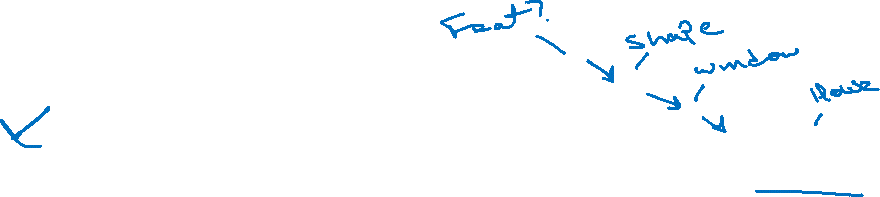 Feat?
shape
window
House